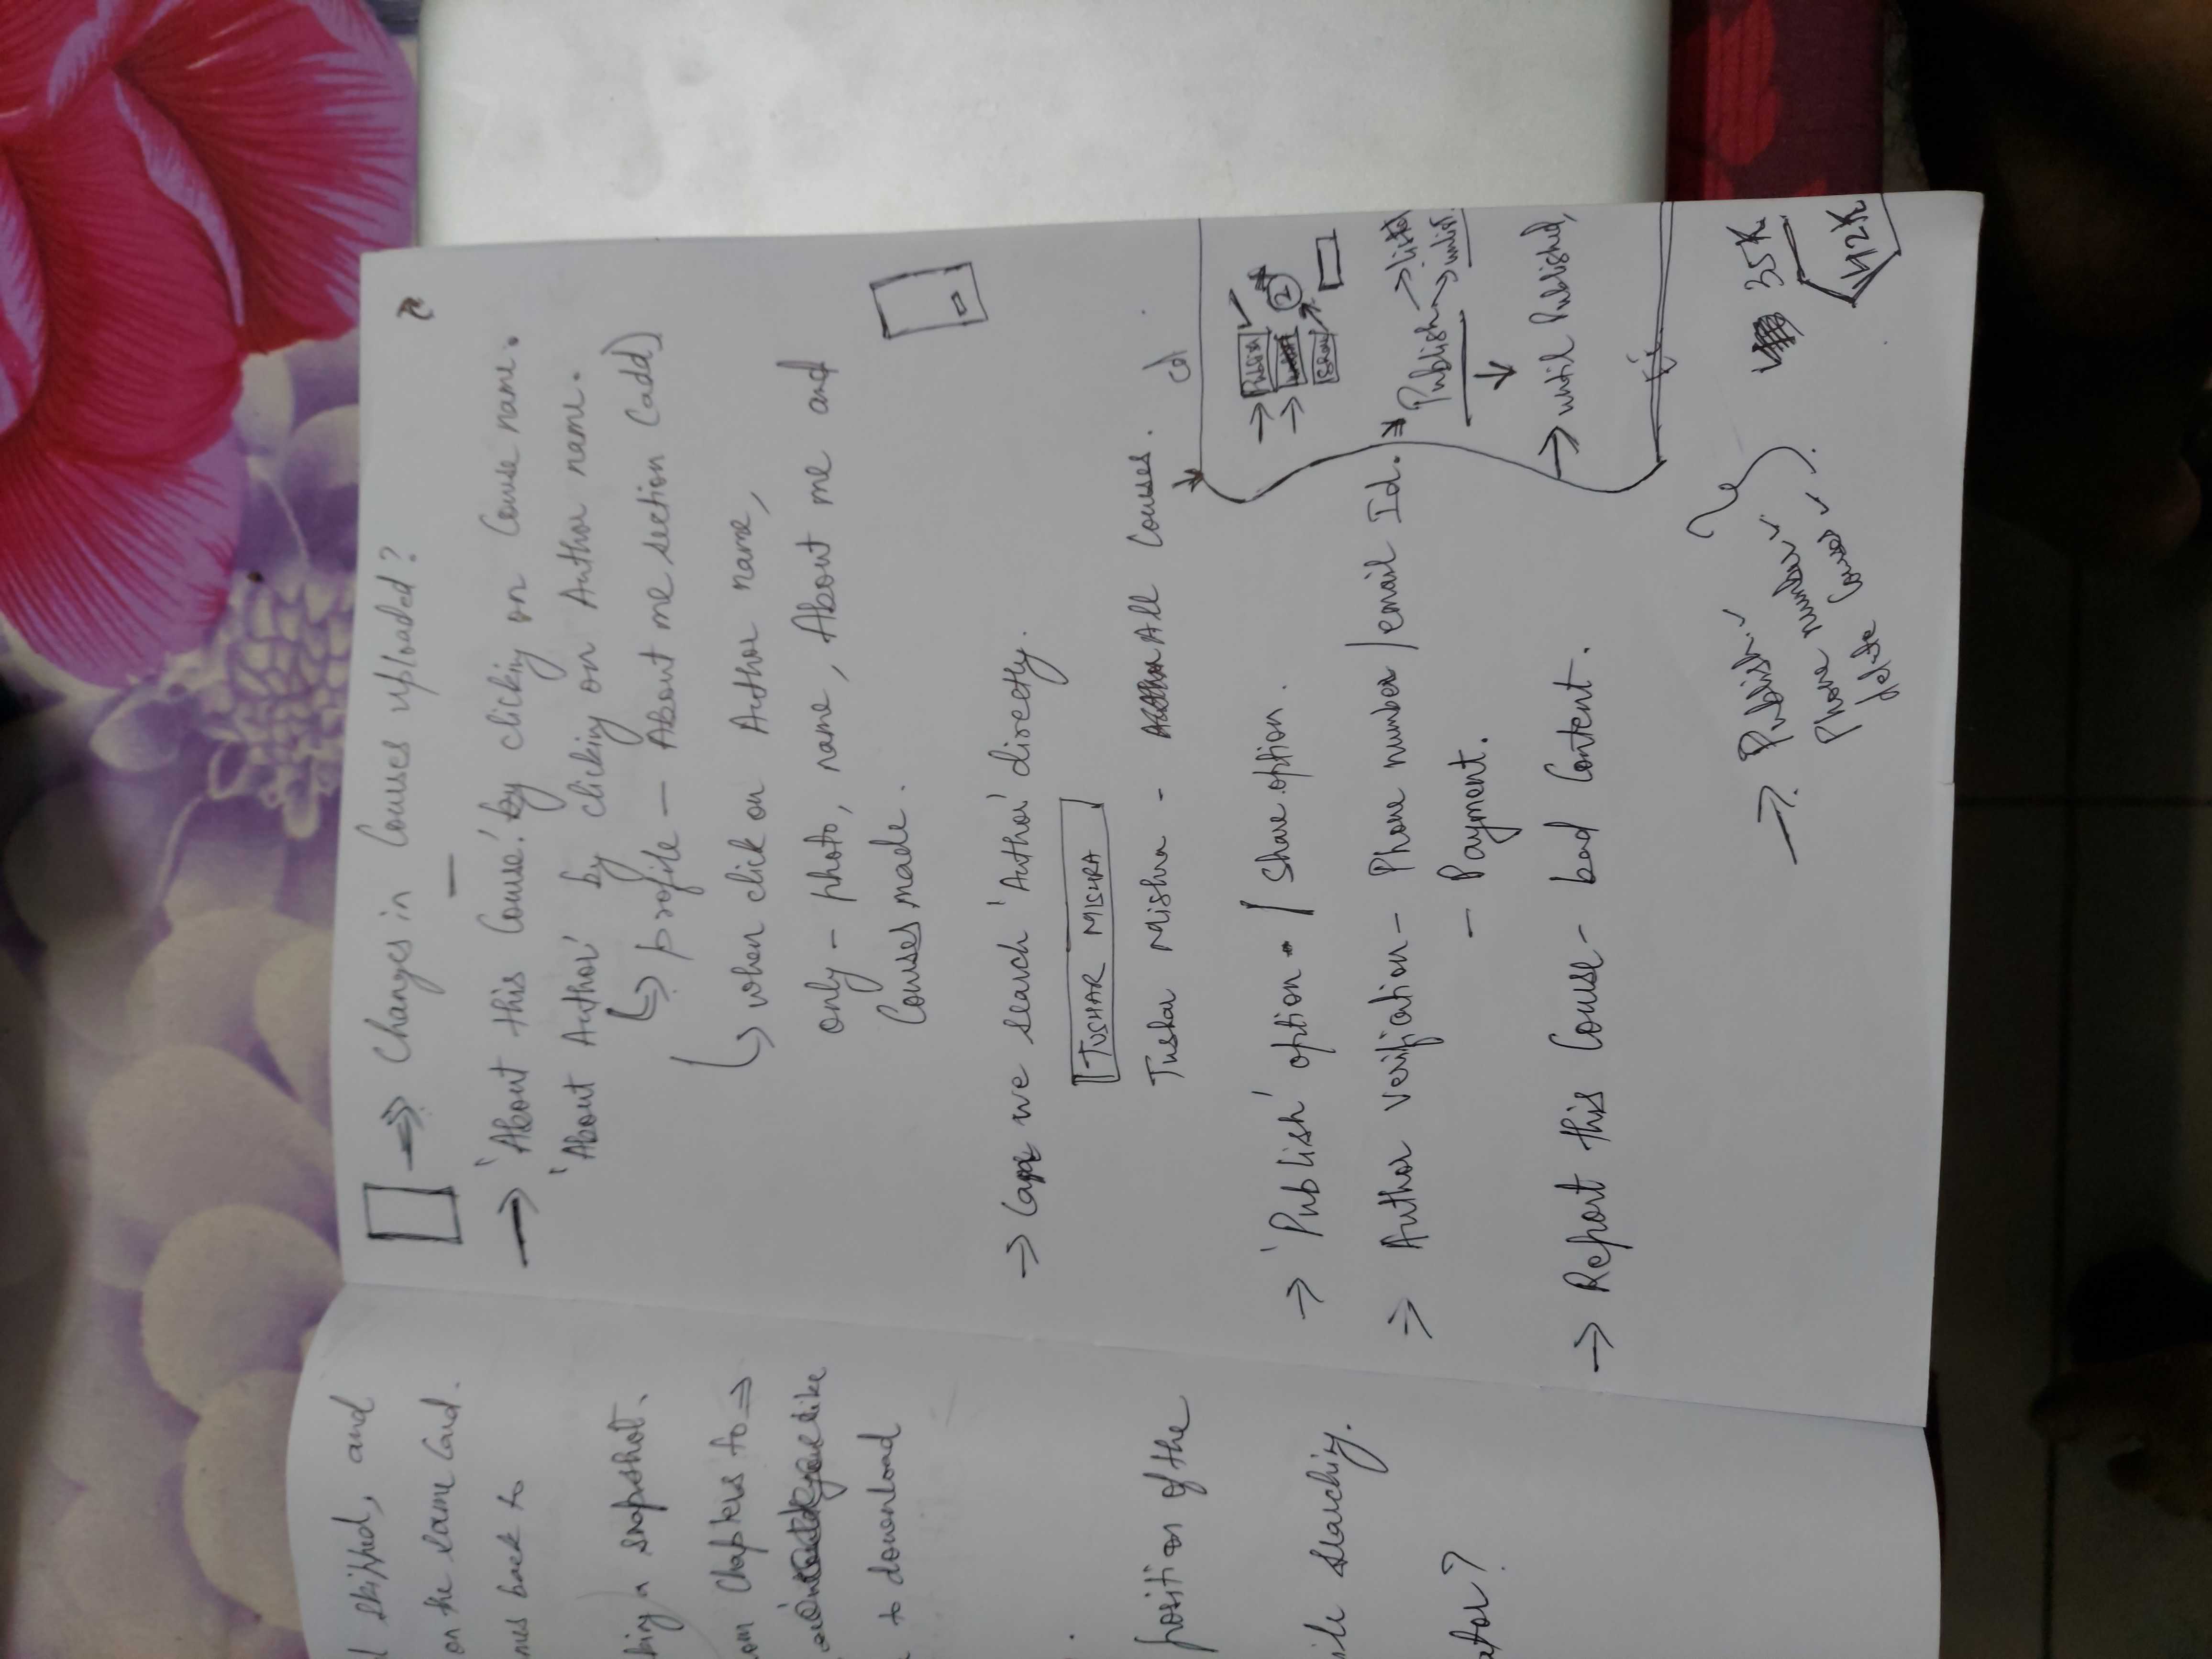 d skipped, and
on the same card.
mes back to
king a snapshot.
om chapters to ⇒
like
to download
position of the
ile searching.
ator?
→ Changes in Courses uploaded?
→ 'About this Course' by clicking on Course name.
'About Author' by clicking on Author name.
↳ profile — About me section (add)
↳ when click on Author name,
only - photo, name, About me and
Courses made.
→ we search 'Author' directly.
TUSHAR MISHRA
Tushar Mishra - All Courses.
→ 'Publish' option / Share option.
→ Author verifiation - Phone number/email Id.
- Payment.
→ Report this Course - bad Content.
→ Publish ✓
→ ②
Share
Publish → listed
→ unlist.
↓
→ until Published,
→ Publish ✓
Phone number ✓
Phone
delete Courses ✓
35K
42K